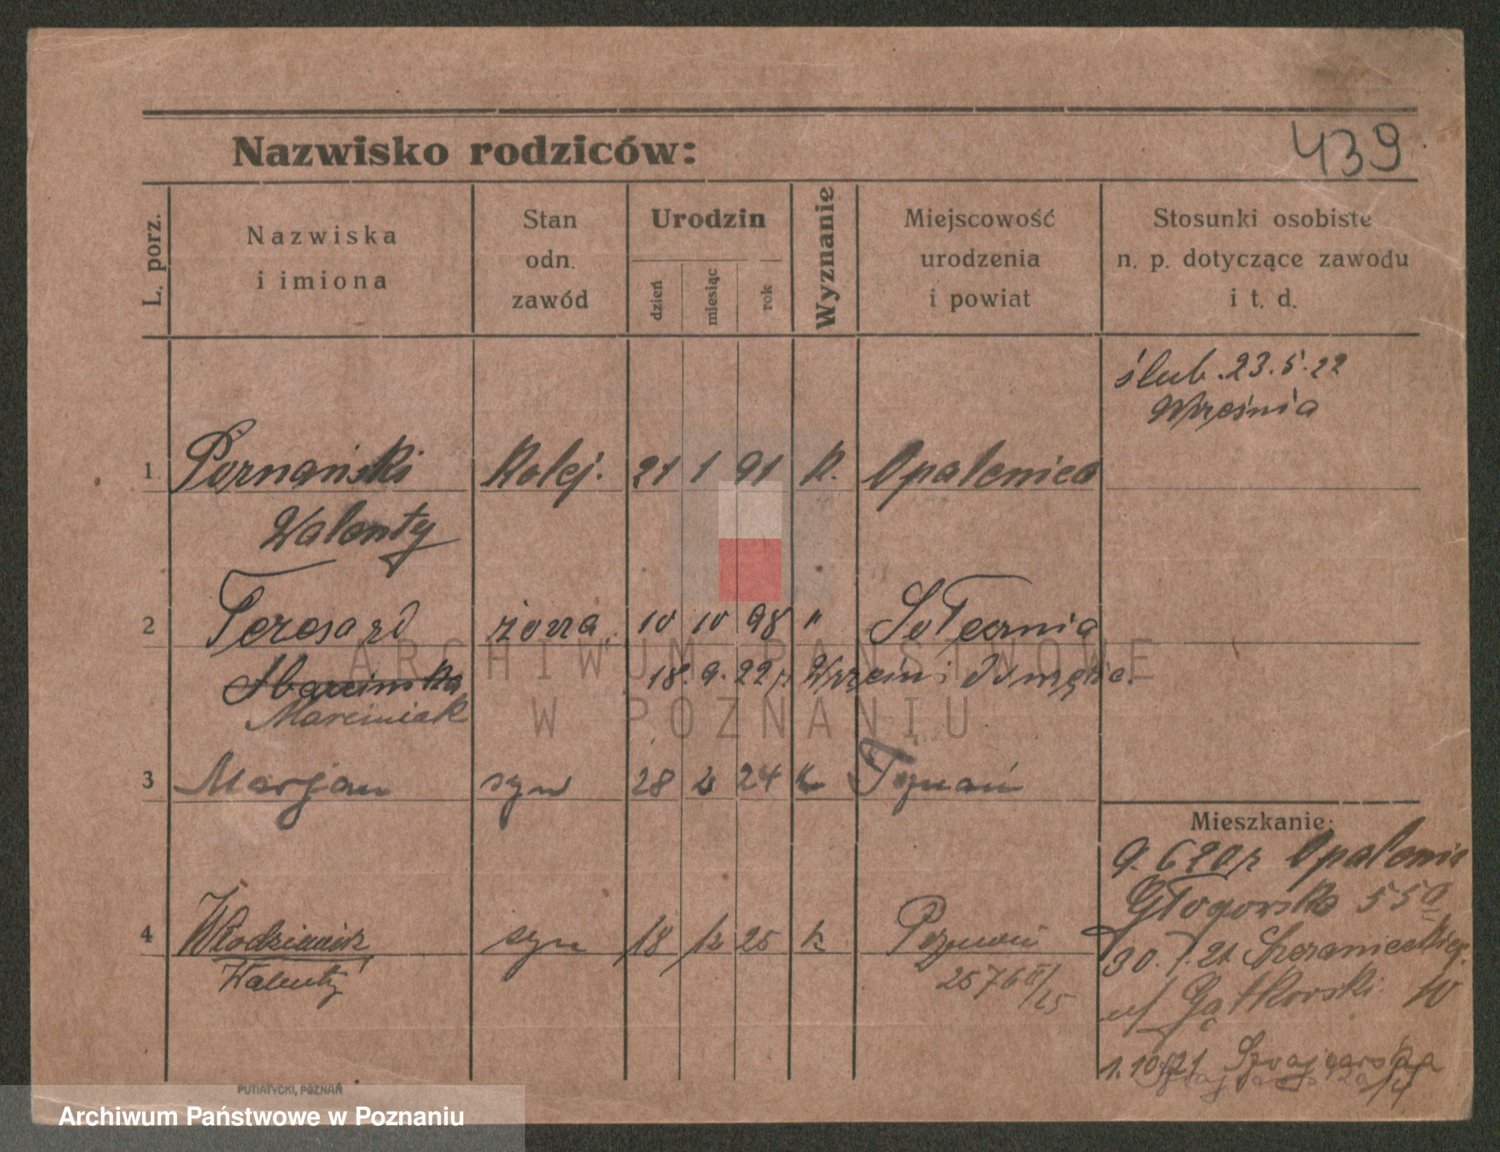 Nazwisko rodziców:
439
L. porz.
Nazwiska
i imiona
Stan
odn.
zawód
Urodzin
dzień
miesiąc
rok
Wyznanie
Miejscowość
urodzenia
i powiat
Stosunki osobiste
n. p. dotyczące zawodu
i t. d.
ślub. 23.5.22
Września
1. Poznański Kolej. 21 1 91 K. Opalenica
Walenty
2 Teresa zd żona 10 10 98 " Sołecznia
18.9.22
Marciniak
3 Marjan syn 28 2 24 k Poznań
Mieszkanie:
9. 6 20 r Opalenica
Głogowska 55a
4 Włodzimierz syn 18 12 25 k Poznań
Walenty
30. 7 21
Gątkowski 10
1. 10 21 Szwajcarska
PUTIATYCKI, POZNAŃ
ARCHIWUM PAŃSTWOWE
W POZNANIU
Archiwum Państwowe w Poznaniu